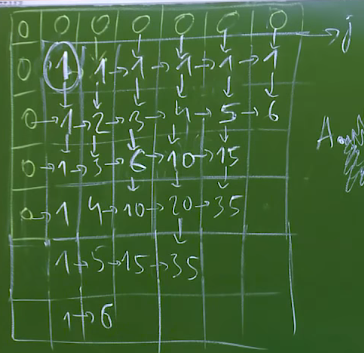 0 0 0 0 0 0 0
0 1 → 1 → 1 → 1 → 1 → 1 → j
0 → 1 → 2 → 3 → 4 → 5 → 6
0 → 1 → 3 → 6 → 10 → 15
0 → 1 4 → 10 → 20 → 35
1 → 5 → 15 → 35
1 → 6